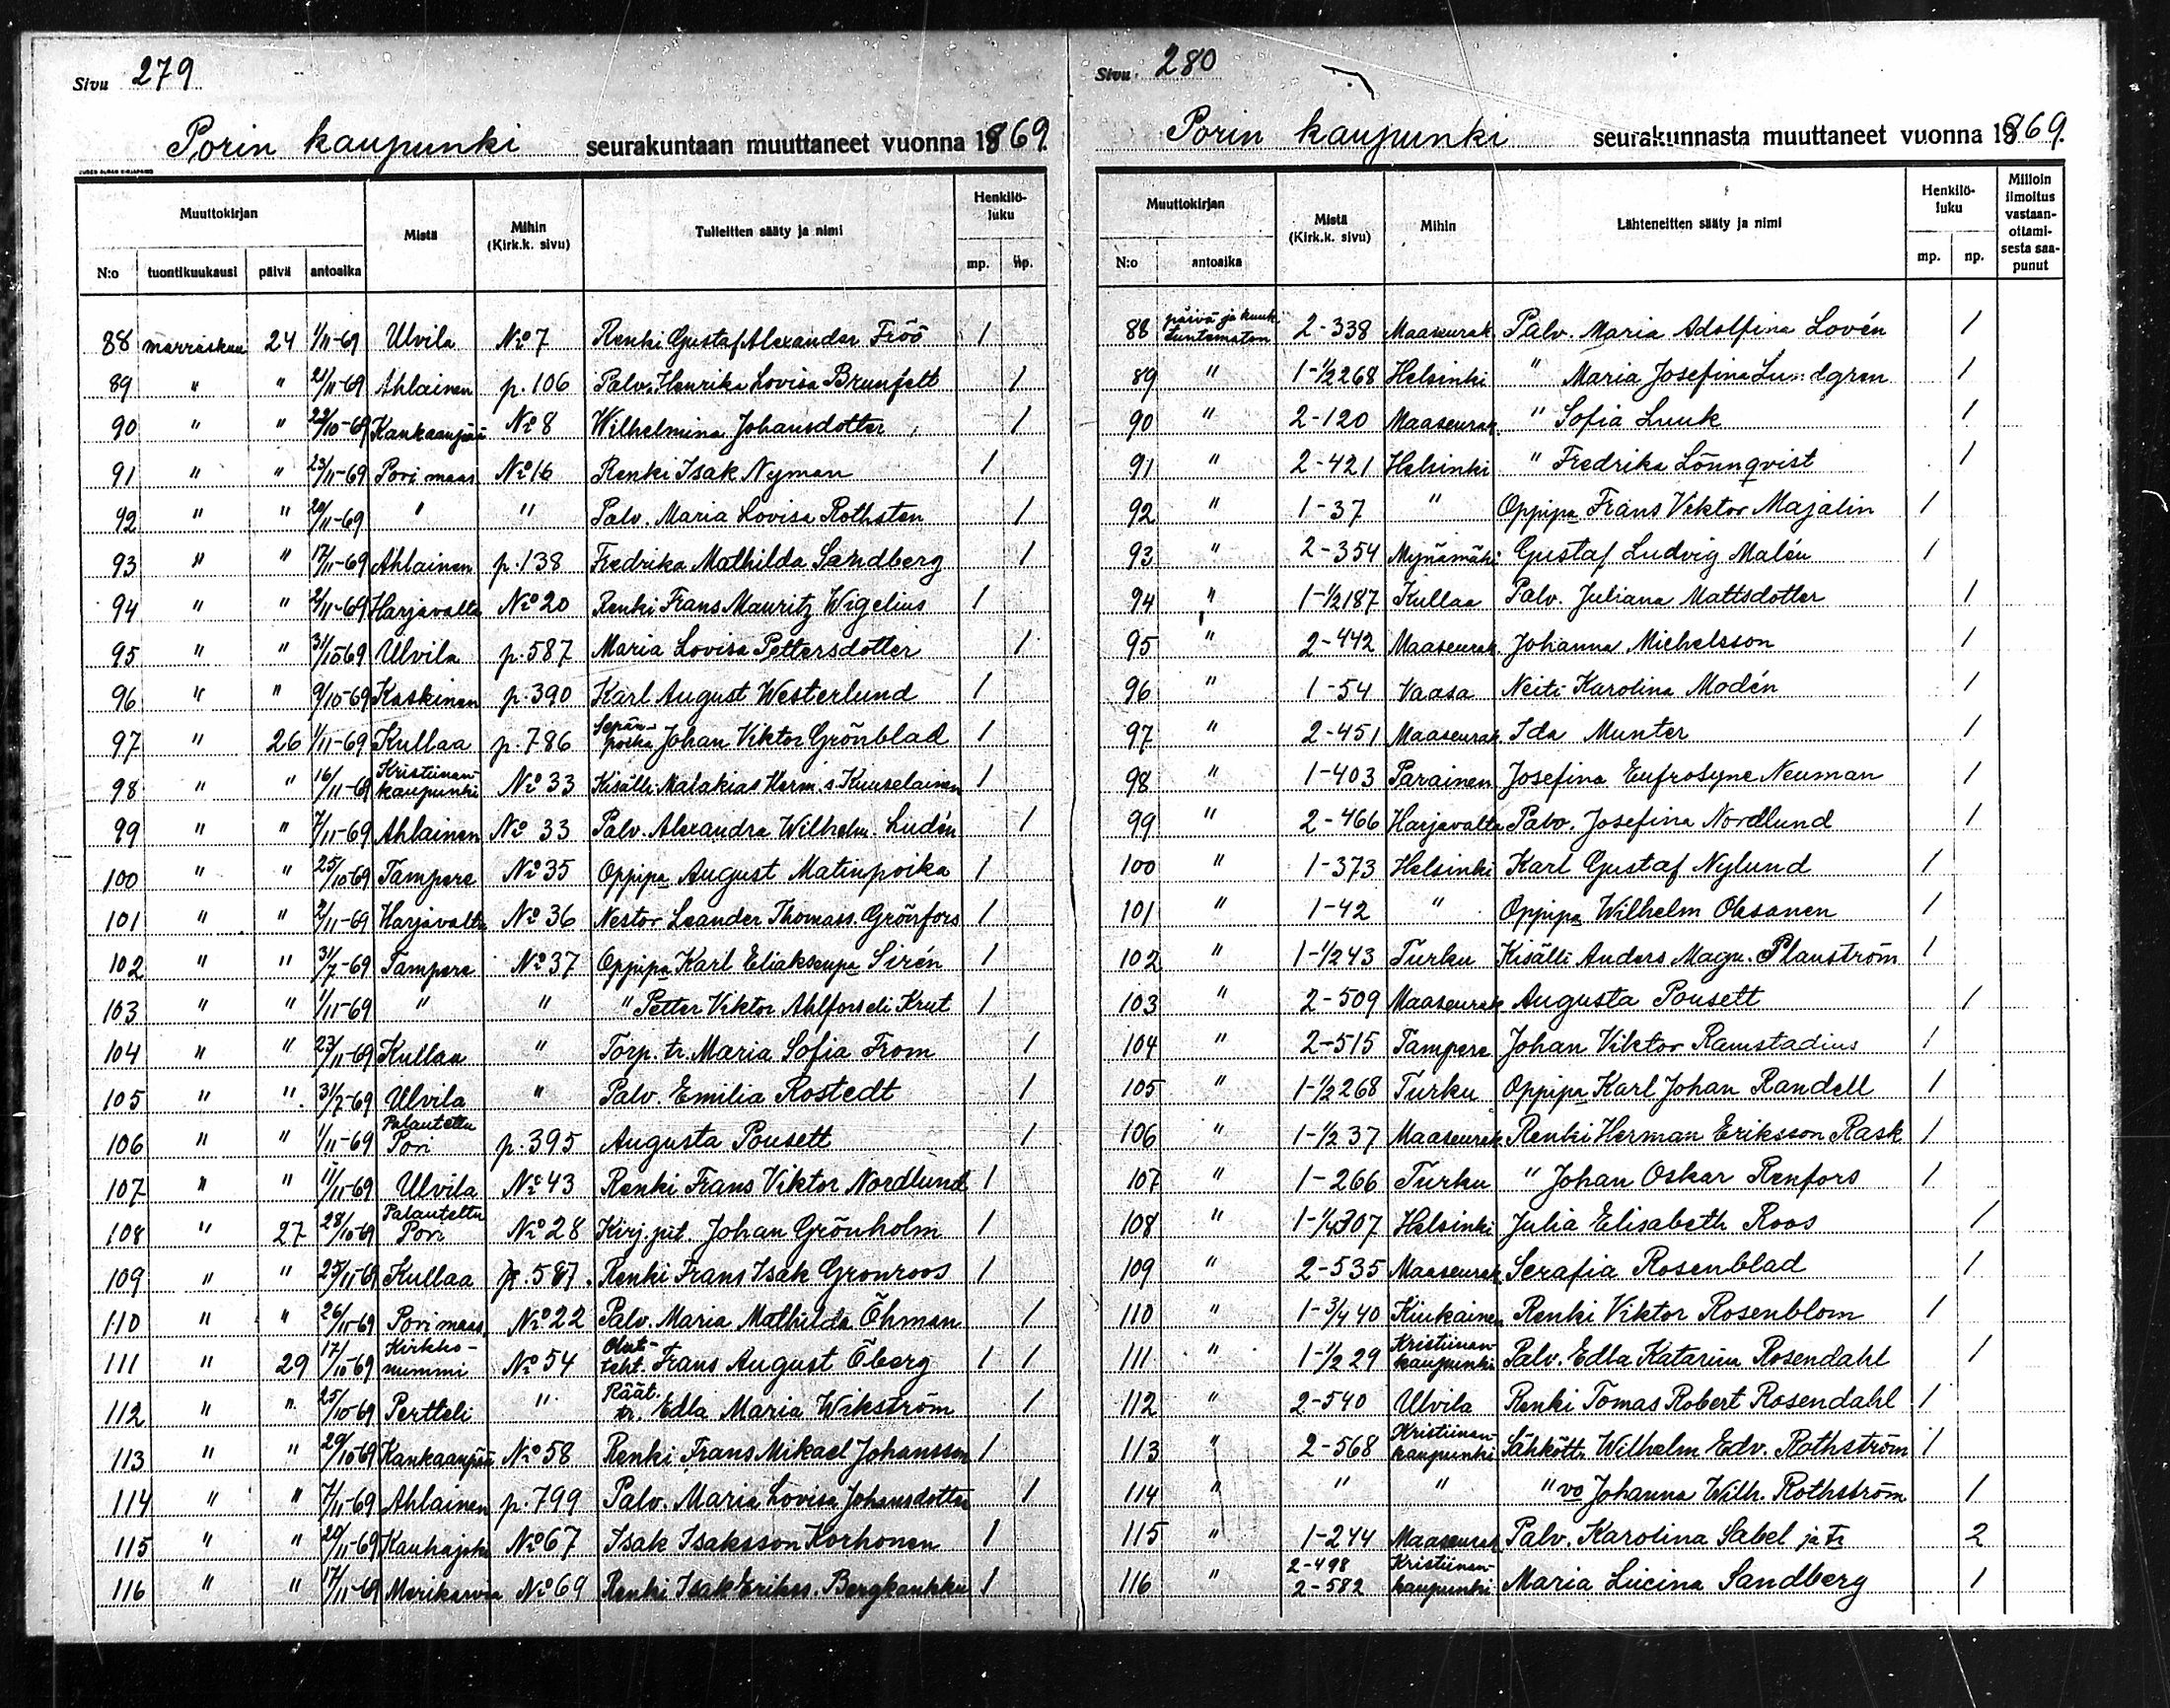 Sivu 279
Porin kaupunki seurakuntaan muuttaneet vuonna 1869
Muuttokirjan Mistä Mihin (Kirk.k. sivu) Tulleitten sääty ja nimi Henkilö-luku
N:o tuontikuukausi päivä antoaika mp. np.
88 marraskuu 24 1/11-69 Ulvila No 7 Renki Gustaf Alexander Fröö 1
89 " " 21/11-69 Ahlainen p. 106 Palv. Henrika Lovisa Brunfelt 1
90 " " 22/10-69 Kankaanpää No 8 Wilhelmina Johansdotter 1
91 " " 23/11-69 Pori maas No 16 Renki Isak Nyman 1
92 " " 20/11-69 " " Palv. Maria Lovisa Rothsten 1
93 " " 17/11-69 Ahlainen p. 138 Fredrika Mathilda Sandberg 1
94 " " 2/11-69 Harjavalta No 20 Renki Frans Mauritz Wigelius 1
95 " " 31/10-69 Ulvila p. 587 Maria Lovisa Pettersdotter 1
96 " " 9/10-69 Kaskinen p. 390 Karl August Westerlund 1
97 " 26 1/11-69 Kullaa p. 786 Sepän-poika Johan Viktor Grönblad 1
98 " " 16/11-69 Kristiinan-kaupunki No 33 Kisälli Malakias Herm. s. Kuuselainen 1
99 " " 7/11-69 Ahlainen No 33 Palv. Alexandra Wilhelm. Ludén 1
100 " " 25/10-69 Tampere No 35 Oppipa August Matinpoika 1
101 " " 2/11-69 Harjavalta No 36 Nestor Leander Thomass. Grönfors 1
102 " " 31/7-69 Tampere No 37 Oppipa Karl Eliaksenpa Sirén 1
103 " " 1/11-69 " " " Petter Viktor Ahlfors eli Krut 1
104 " " 23/11-69 Kullaa " Torp. tr. Maria Sofia From 1
105 " " 31/7-69 Ulvila " Palv. Emilia Rostedt 1
106 " " 1/11-69 Palautettu Pori p. 395 Augusta Pousett 1
107 " " 11/11-69 Ulvila No 43 Renki Frans Viktor Nordlund 1
108 " 27 28/10-69 Palautettu Pori No 28 Kirj. pit. Johan Grönholm 1
109 " " 25/11-69 Kullaa p. 587. Renki Frans Isak Gronroos 1
110 " " 26/11-69 Pori maas. No 22 Palv. Maria Mathilda Öhman 1
111 " 29 17/10-69 Kirkko-nummi No 54 Olut-teht. Frans August Öberg 1 1
112 " " 25/10-69 Pertteli " Räät. tr. Edla Maria Wikström 1
113 " " 29/10-69 Kankaanpää No 58 Renki Frans Mikael Johansson 1
114 " " 7/11-69 Ahlainen p. 799 Palv. Maria Lovisa Johansdotter 1
115 " " 20/11-69 Kauhajoki No 67 Isak Isaksson Korhonen 1
116 " " 17/11-69 Merikarvia No 69 Renki Isak Erikss. Bergkaukku 1
Sivu 280
Porin kaupunki seurakunnasta muuttaneet vuonna 1869.
Muuttokirjan Mistä (Kirk.k. sivu) Mihin Lähteneitten sääty ja nimi Henkilö-luku Milloin ilmoitus vastaan-ottami-sesta saa-punut
N:o antoaika mp. np.
88 päivä ja kuuk. tuntematon 2-338 Maaseurak. Palv. Maria Adolfina Lovén 1
89 " 1-1/2 268 Helsinki " Maria Josefina Lundgren 1
90 " 2-120 Maaseurak. " Sofia Luuk 1
91 " 2-421 Helsinki " Fredrika Lönnqvist 1
92 " 1-37 " Oppipa Frans Viktor Majalin 1
93 " 2-354 Mynämäki Gustaf Ludvig Malén 1
94 " 1-1/2 187 Kullaa Palv. Juliana Mattsdotter 1
95 " 2-442 Maaseurak. Johanna Michelsson 1
96 " 1-54 Vaasa Neiti Karolina Modén 1
97 " 2-451 Maaseurak. Ida Munter 1
98 " 1-403 Parainen Josefina Eufrosyne Neuman 1
99 " 2-466 Harjavalta Palv. Josefina Nordlund 1
100 " 1-373 Helsinki Karl Gustaf Nylund 1
101 " 1-42 " Oppipa Wilhelm Oksanen 1
102 " 1-1/2 43 Turku Kisälli Anders Magn. Planström 1
103 " 2-509 Maaseurak Augusta Pousett 1
104 " 2-515 Tampere Johan Viktor Ramstadius 1
105 " 1-1/2 268 Turku Oppipa Karl Johan Randell 1
106 " 1-1/2 37 Maaseurak Renki Herman Eriksson Rask 1
107 " 1-266 Turku " Johan Oskar Renfors 1
108 " 1-1/4 307 Helsinki Julia Elisabeth Roos 1
109 " 2-535 Maaseurak Serafia Rosenblad 1
110 " 1-3/4 40 Kiukainen Renki Viktor Rosenblom 1
111 " 1-1/2 29 Kristiinan-kaupunki Palv. Edla Katarina Rosendahl 1
112 " 2-540 Ulvila Renki Tomas Robert Rosendahl 1
113 " 2-568 Kristiinan-kaupunki Sähkött. Wilhelm Edv. Rothström 1
114 " " " " vo Johanna Wilh. Rothström 1
115 " 1-244 Maaseurak Palv. Karolina Sabel ja tr 2
116 " 2-498 2-582 Kristiinan-kaupunki Maria Lucina Sandberg 1